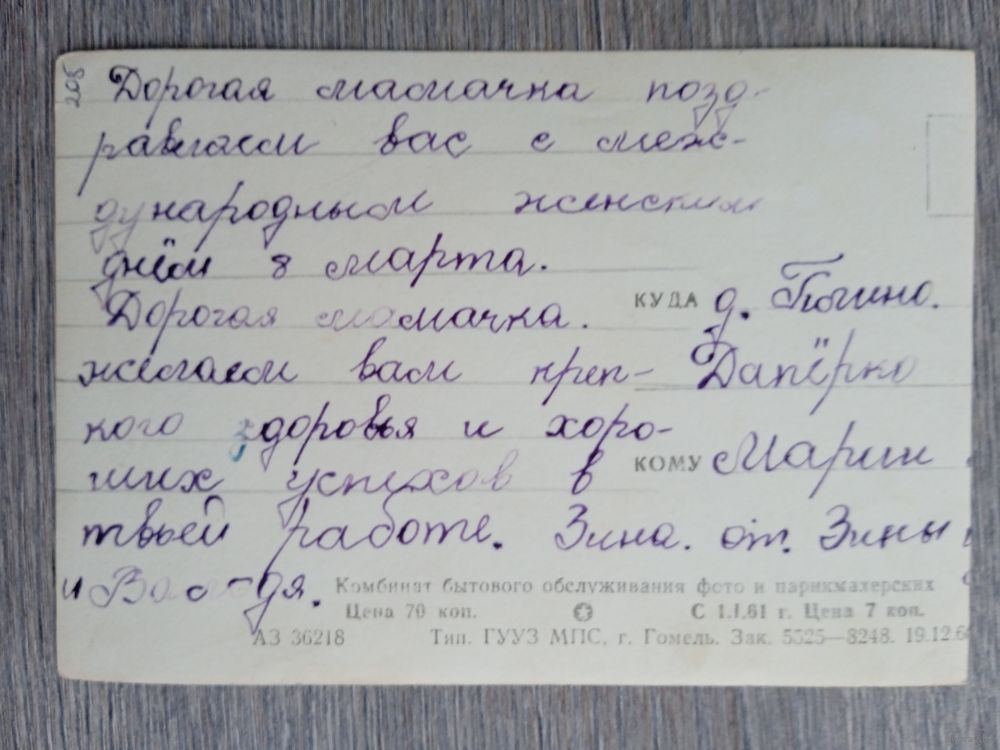 208
Дорогая мамачка позд-
равляем вас с меж-
дународным женским
днём 8 марта.
Дорогая мамачка.
желаем вам креп-
кого здоровья и хоро-
ших успехов в
твоей работе. Зина. от. Зины
и Володя.
КУДА д.
КОМУ Марии
Комбинат бытового обслуживания фото и парикмахерских
Цена 70 коп. С 1.1.61 г. Цена 7 коп.
АЗ 36218 Тип. ГУУЗ МПС, г. Гомель. Зак. 5525—8248. 19.12.6